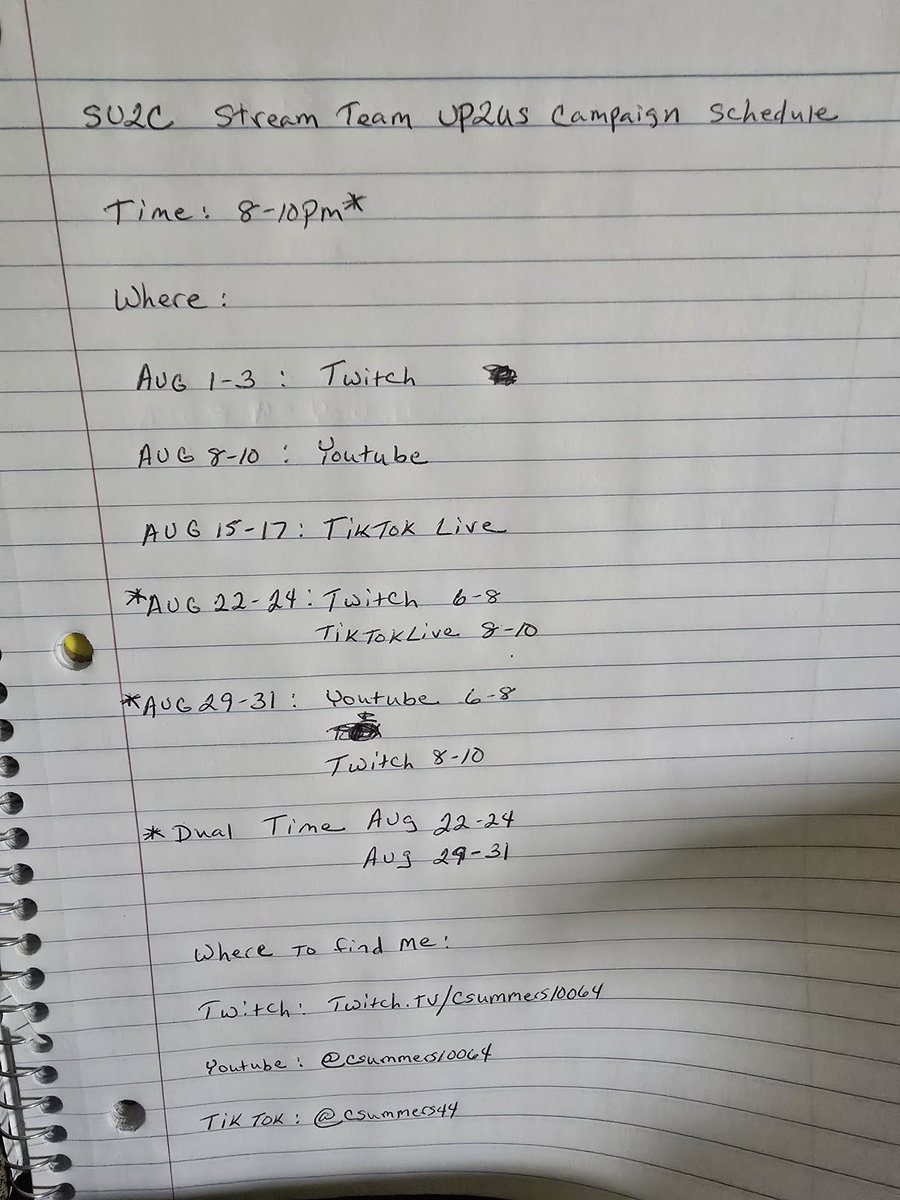 SU2C Stream Team UP2US Campaign Schedule
Time: 8-10pm*
Where:
AUG 1-3 : Twitch
AUG 8-10 : Youtube
AUG 15-17: TikTok Live
*AUG 22-24: Twitch 6-8
TikTokLive 8-10
*AUG 29-31: Youtube 6-8
&
Twitch 8-10
* Dual Time Aug 22-24
Aug 29-31
Where to find me:
Twitch: Twitch.TV/csummers10064
Youtube: @csummers10064
TikTok: @csummers44